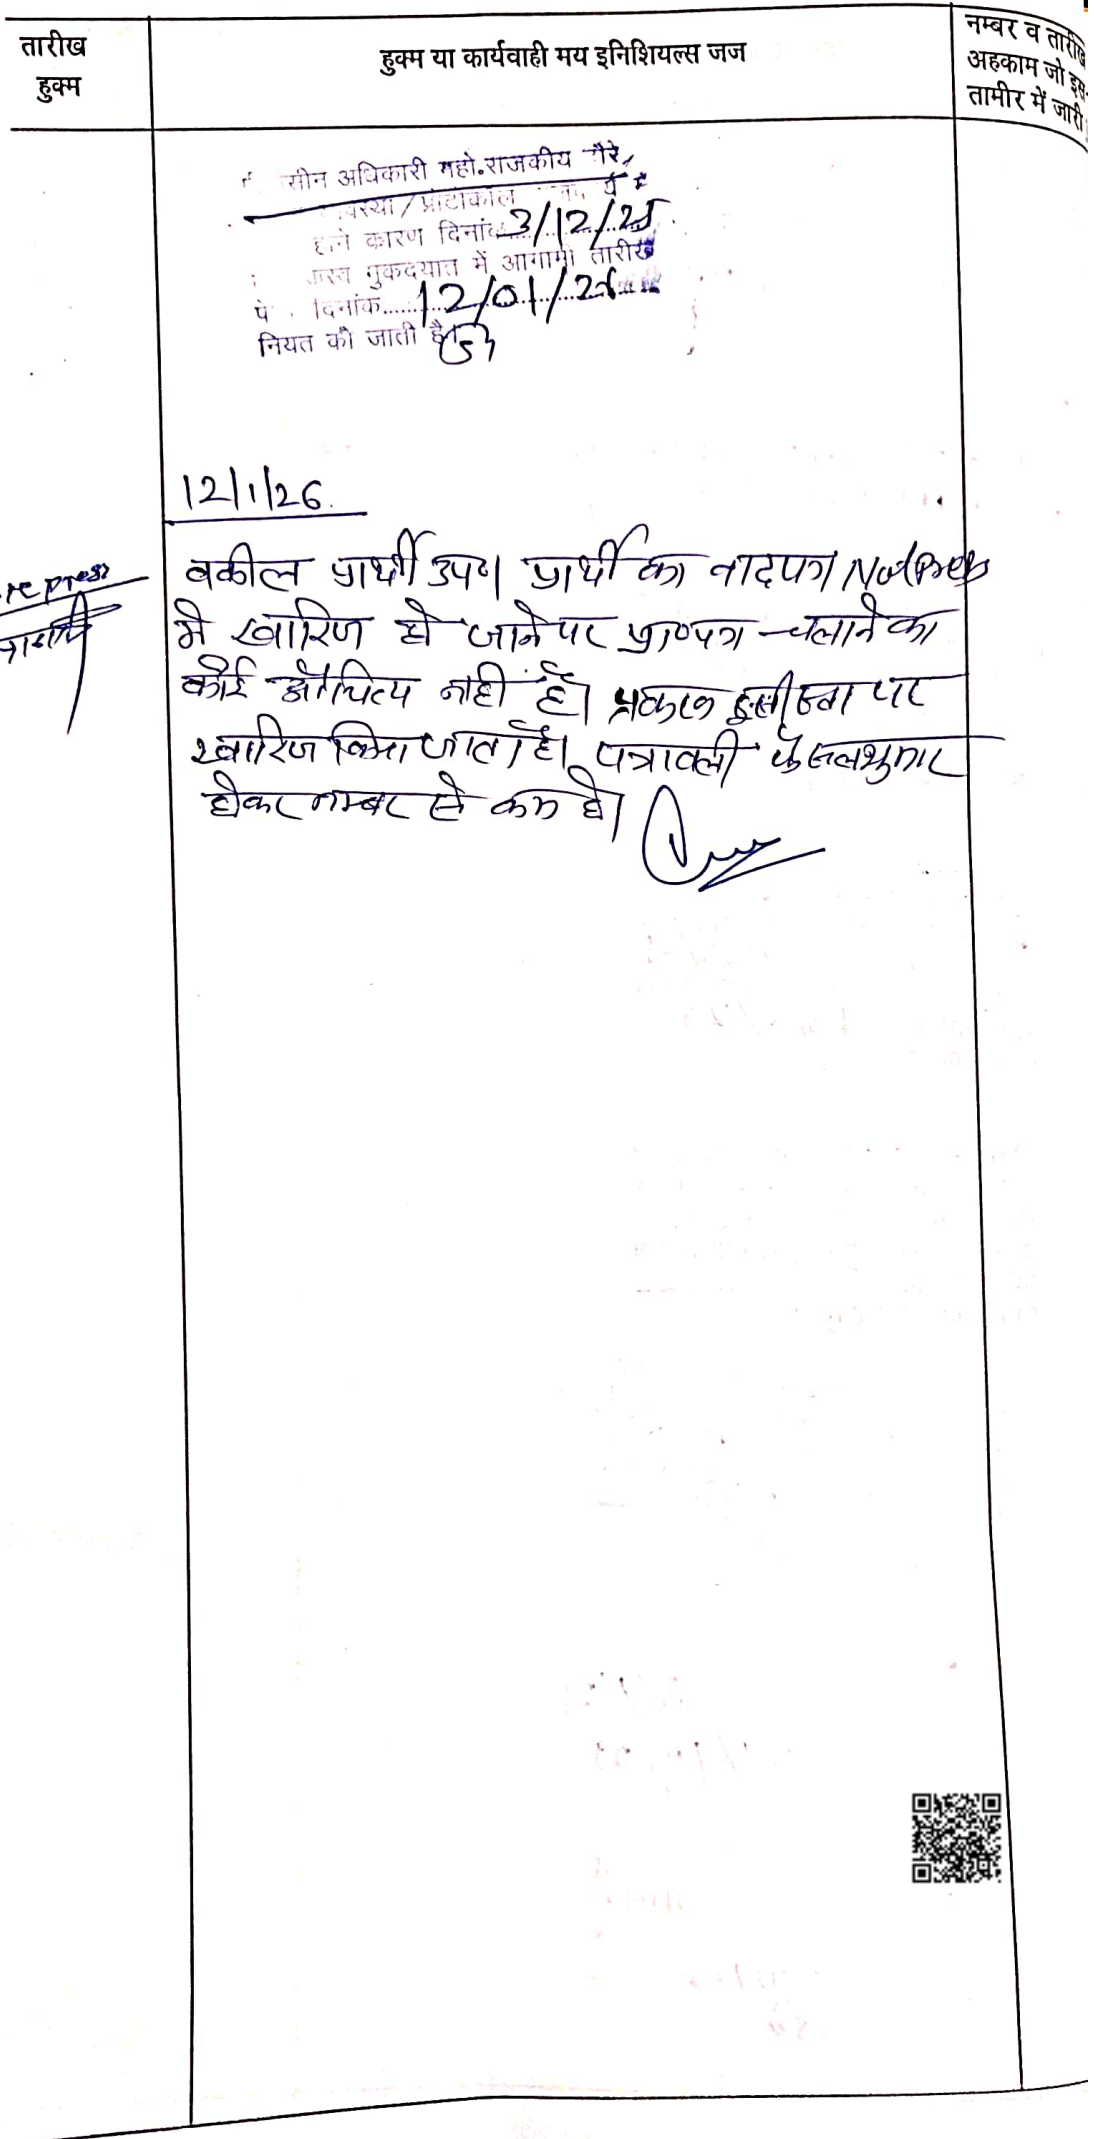 तारीख
हुक्म
हुक्म या कार्यवाही मय इनिशियल्स जज
नम्बर व तारीख
अहकाम जो इस
तामीर में जारी
सीन अधिकारी महो.राजकीय
/ प्रोटोकाल
होने कारण दिनांक 3/12/25
मुकदमात में आगामी तारीख
दिनांक......12/01/26
नियत की जाती है।
12/1/26.
वकील प्रार्थी उप। प्रार्थी का वादपत्र Not Press
मे खारिज हो जाने पर प्रा०पत्र चलाने का
कोई औचित्य नही है। प्रकरण इसी स्तर पर
खारिज किया जाता है। पत्रावली फैसलशुमार
होकर नम्बर से कम हो।